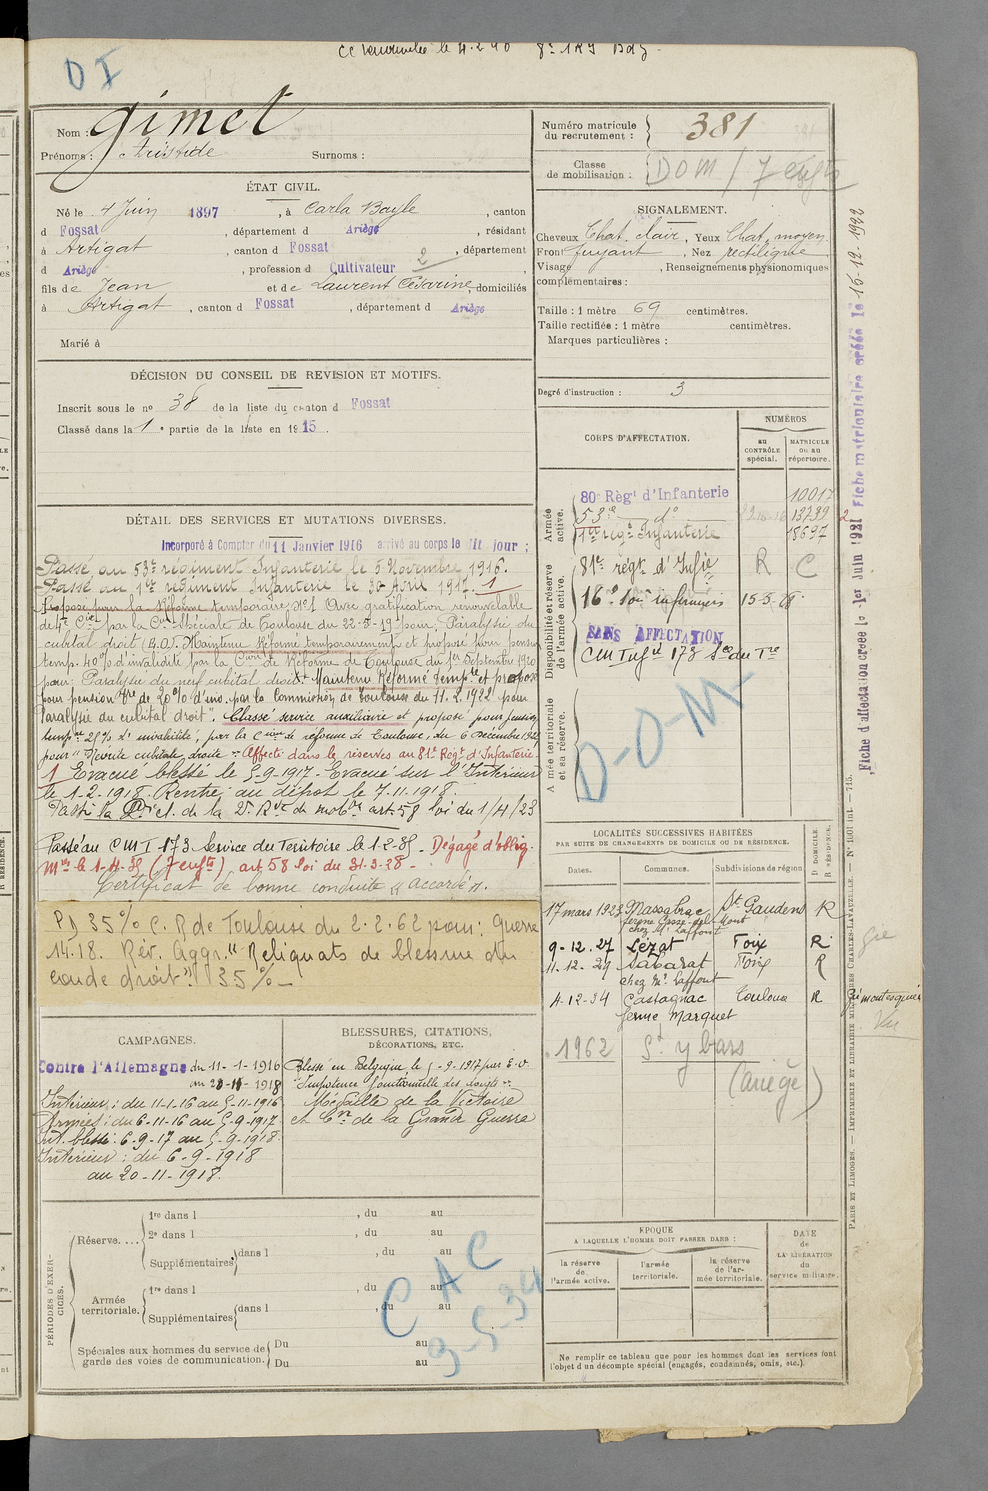 D I
Nom : Gimet
Prénoms : Aristide Surnoms :
Numéro matricule du recrutement : 381
Classe de mobilisation : DOM / 7 enfts
ÉTAT CIVIL.
Né le 4 Juin 1897, à Carla Bayle, canton
d Fossat, département d Ariège, résidant
à Artigat, canton d Fossat, département
d Ariège, profession d Cultivateur 2
fils de Jean et de Laurent Césarine, domiciliés
à Artigat, canton d Fossat, département d Ariège
Marié à
SIGNALEMENT.
Cheveux Chat. clair, Yeux Chat. moyen
Front fuyant, Nez rectiligne
Visage , Renseignements physionomiques
complémentaires :
Taille : 1 mètre 69 centimètres.
Taille rectifiée : 1 mètre centimètres.
Marques particulières :
Degré d'instruction : 3
DÉCISION DU CONSEIL DE REVISION ET MOTIFS.
Inscrit sous le no 38 de la liste du canton d Fossat
Classé dans la 1e partie de la liste en 1915.
DÉTAIL DES SERVICES ET MUTATIONS DIVERSES.
Incorporé à Compter du 11 Janvier 1916 arrivé au corps le dit jour ;
Passé au 53e régiment Infanterie le 5 Novembre 1916.
Passé au 1er régiment Infanterie le 30 Avril 1917. 1
Proposé pour la Réforme temporaire No 1 Avec gratification renouvelable
de 4e Cie par la Con Spéciale de Toulouse du 22-3-19 pour Paralysie du
cubital droit (A.O.T. Maintenu Réformé temporairement et proposé pour pension
temp. 40% d'invalidité par la Con de Réforme de Toulouse du 1er Septembre 1920
pour : Paralysie du nerf cubital droit. Maintenu Réformé Tempre et proposé
pour pension tre de 20% d'inv. par la Commission de Toulouse du 11.2.1922 pour
"Paralysie du cubital droit". Classé service auxiliaire et proposé pour pension
tempre 25% d'invalidité, par la Con de réforme de Toulouse, du 6 Décembre 192
pour "Névrite cubitale droite" Affecté dans les réserves au 81e Régt d'Infanterie.
1 Evacué blessé le 5-9-1917. Evacué sur l'Intérieur
le 1-2-1918. Rentré au dépôt le 7.11.1918.
Passé la Don cl. de la 2e Rve de mobon art. 58 loi du 1/4/23
Passé au C M I 173 Service du Territoire le 1-2-35. Dégagé d'oblig.
Mres le 1-4-35 (7 enfts) art 58 loi du 31-3-28 -
Certificat de bonne conduite "Accordé".
PD 35% C. R de Toulouse du 2-2-62 pour : Guerre
14-18. Rév. Aggr. "Reliquats de blessure du
coude droit" 35% -
CORPS D'AFFECTATION.
NUMÉROS
au CONTRÔLE spécial.
MATRICULE ou au répertoire.
Armée active.
80e Régt d'Infanterie 10017
53e do 13739
1er régt Infanterie 18697
Disponibilité et réserve de l'armée active.
81e régt d'Infie R C
16e Son infirmiers 15-5-28
SANS AFFECTATION
CM Infie 173 Sce du Tre
Armée territoriale et sa réserve.
D-O-M-
LOCALITÉS SUCCESSIVES HABITÉES
PAR SUITE DE CHANGEMENTS DE DOMICILE OU DE RÉSIDENCE.
Dates. Communes. Subdivisions de région D DOMICILE. R RÉSIDENCE.
17 mars 1923 Massabrac St Gaudens R
chez Mr Laffont
9-12-27 Lézat Foix R
11-12-29 Sabarat Foix R
chez Mr Laffont
4-12-34 Castagnac Toulouse R
ferme Marquet
1962 St ybars
(ariège)
CAMPAGNES.
Contre l'Allemagne du 11-1-1916
au 20-11-1918
Intérieur : du 11-1-16 au 5-11-1916
Armées : du 6-11-16 au 5-9-1917
Int. blessé : 6-9-17 au 5-9-1918.
Intérieur : du 6-9-1918
au 20-11-1918.
BLESSURES, CITATIONS,
DÉCORATIONS, ETC.
Blessé en Belgique le 5-9-1917 par E.O.
"Impotence fonctionnelle des doigts".
Médaille de la Victoire
et Cve de la Grande Guerre
PÉRIODES D'EXERCICES.
Réserve....
1re dans l , du au
2e dans l , du au
Supplémentaires dans l , du au
Armée territoriale.
1re dans l , du au
Supplémentaires dans l , du au
Spéciales aux hommes du service de garde des voies de communication.
Du au
Du au
C A C
3-5-34
EPOQUE
A LAQUELLE L'HOMME DOIT PASSER DANS :
la réserve de l'armée active.
l'armée territoriale.
la réserve de l'armée territoriale.
DATE de LA LIBÉRATION du service militaire.
Ne remplir ce tableau que pour les hommes dont les services font
l'objet d'un décompte spécial (engagés, condamnés, omis, etc.).
Fiche d'affectation créée le 1er Juin 1921 Fiche matriculaire créée le 15-12-1922
PARIS ET LIMOGES. — IMPRIMERIE ET LIBRAIRIE MILITAIRES CHARLES-LAVAUZELLE. — No 1001 int. — 715.